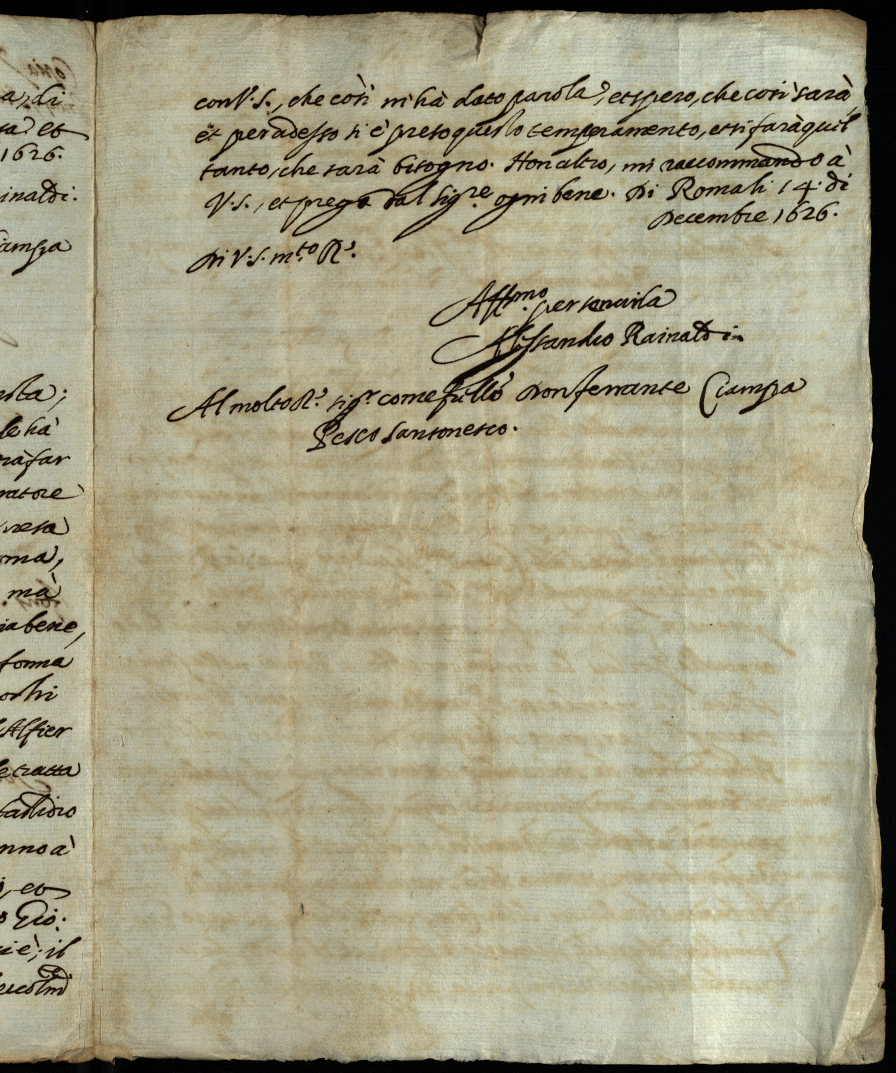 a, di
sa et
1626.
inaldi.
iampa
ista;
le hà
rà far
ratore
presa
oma,
mà
ia bene,
forma
orhi
l'Alfier
le tratta
fastidio
anno à
, et
Gio:
ie, il
con V.S., che così m'hà dato parola, et spero, che così sarà,
et per adesso si è preso questo temperamento, et si farà quel
tanto, che sarà bisogno. Non altro, mi raccommando à
V.S., et prego dal Sig.re ogni bene. Di Roma li 14. di
Decembre 1626.
Di V.S. m.to R.
Aff.mo per servirla
Alessandro Rainaldi
Al molto R. sig.r come fr̃llo Don ferrante Ciampa
Pesco Sansonesco.